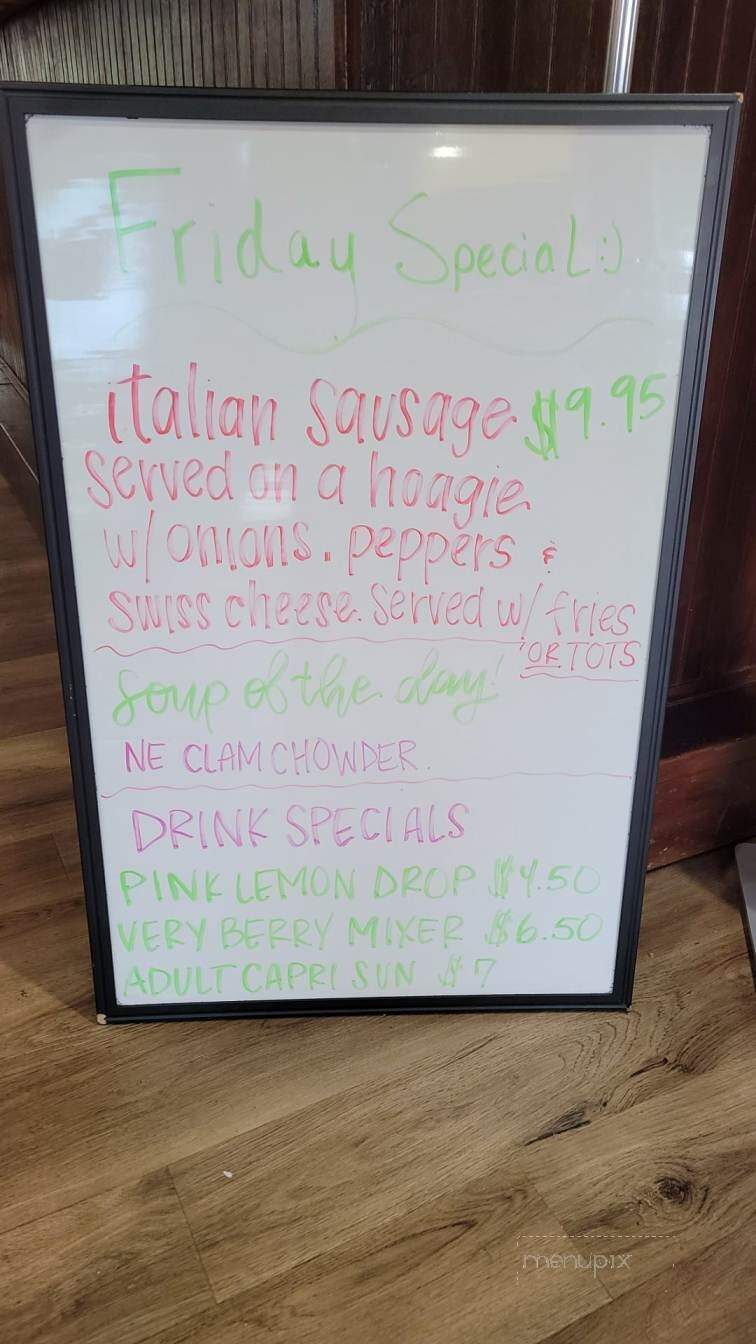 Friday Special :)
italian sausage $9.95
served on a hoagie
w/ onions, peppers &
swiss cheese. served w/ fries
OR TOTS
soup of the day!
NE CLAM CHOWDER.
DRINK SPECIALS
PINK LEMON DROP $4.50
VERY BERRY MIXER $6.50
ADULT CAPRI SUN $7
menupix